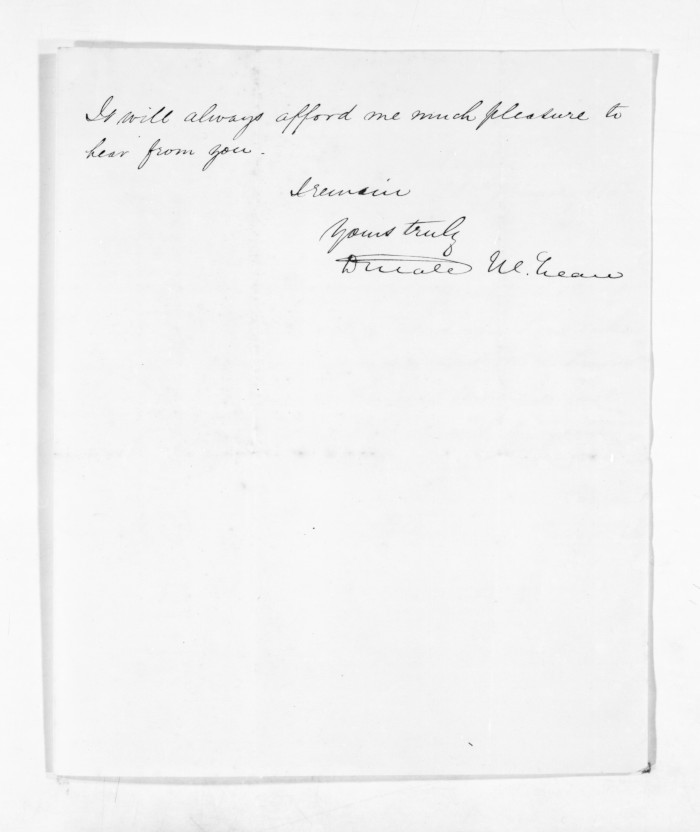 It will always afford me much pleasure to
hear from you.
I remain
Yours truly
Donald McLean